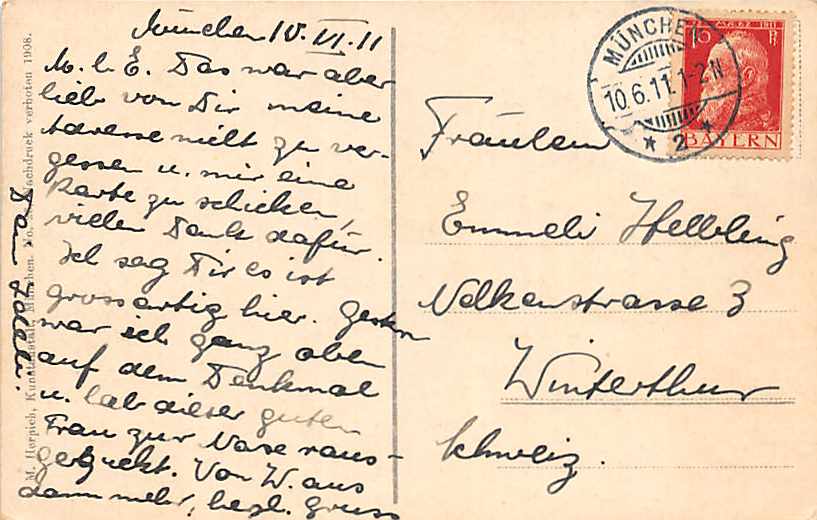 München 10. VI. 11
M. l. E. Das war aber
lieb von Dir meine
Adresse nicht zu ver-
gessen u. mir eine
Karte zu schicken,
vielen Dank dafür.
Ich sag Dir es ist
grossartig hier. Gestern
war ich ganz oben
auf dem Denkmal
u. hab dieser guten
Frau zur Nase raus-
geguckt. Von W. aus
dann mehr, herzl. Gruss
Dein
M. Herpich, Kunstanstalt, München. No. Nachdruck verboten 1908.
Fräulein
Emmeli Helbling
Nelkenstrasse 3
Winterthur
Schweiz.
MÜNCHEN
10.6.11.1-2N
* 2 *
MÄRZ 1911
BAYERN